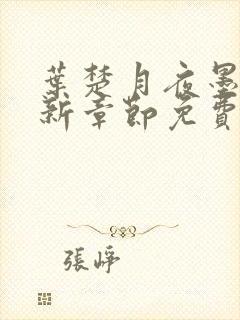 葉楚月夜墨
新章節免費
張崢